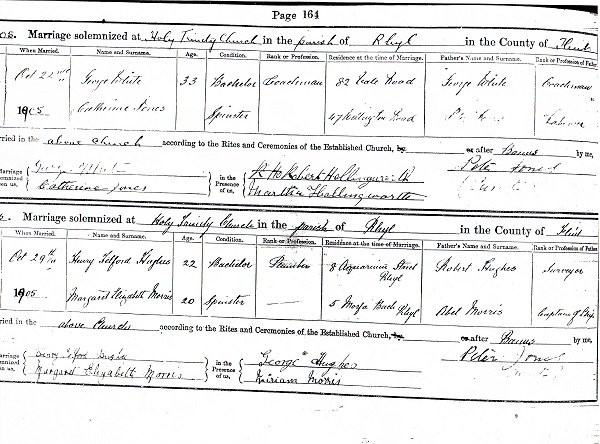 Page 164
Marriage solemnized at Holy Trinity Church in the parish of Rhyl in the County of Flint
When Married. Name and Surname. Age. Condition. Rank or Profession. Residence at the time of Marriage. Father's Name and Surname. Rank or Profession of Father
Oct 22nd George White 33 Bachelor Coachman 82 Vale Road George White Coachman
1905 Catherine Jones Spinster 47 Wellington Road Labourer
rried in the above church according to the Rites and Ceremonies of the Established Church, by or after Banns by me,
arriage George White in the
olemnized Presence
een us, Catherine Jones of us, Martha Hollingworth Peter Jones
s. Marriage solemnized at Holy Trinity Church in the parish of Rhyl in the County of Flint
When Married. Name and Surname. Age. Condition. Rank or Profession. Residence at the time of Marriage. Father's Name and Surname. Rank or Profession of Father
Oct 29th Henry Telford Hughes 22 Bachelor Plumber 8 Aquarium Street Rhyl Robert Hughes Surveyor
1905 Margaret Elizabeth Morris 20 Spinster 5 Morfa Bach Rhyl Abel Morris Captain of Ship
rried in the above Church according to the Rites and Ceremonies of the Established Church, by or after Banns by me,
arriage Henry Telford Hughes in the George Hughes Peter Jones
olemnized Presence
een us, Margaret Elizabeth Morris of us, Miriam Morris